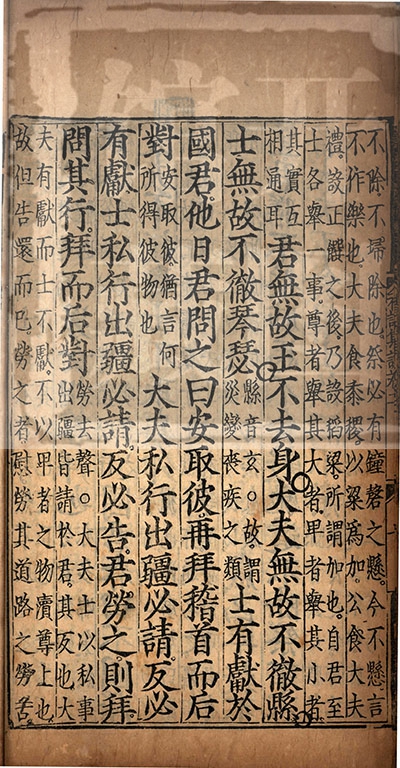 不除不埽除也祭必有鐘磬之懸今不懸言
不作樂也大夫食黍稷以粱為加公食大夫
禮設正饌之後乃設稻粱所謂加也自君至
士各舉一事尊者舉其大者卑者舉其小者
其實互
相通耳
君無故玉不去身大夫無故不徹縣
士無故不徹琴瑟
縣音玄○故謂
災變喪疾之類
士有獻於
國君他日君問之曰安取彼再拜稽首而后
對
安取彼猶言何
所得彼物也
大夫私行出疆必請反必
有獻士私行出疆必請反必告君勞之則拜
問其行拜而后對
勞去聲○大夫士以私事
出疆皆請於君其反也大
夫有獻而士不獻不以卑者之物瀆尊上也
故但告還而已勞之者慰勞其道路之勞苦